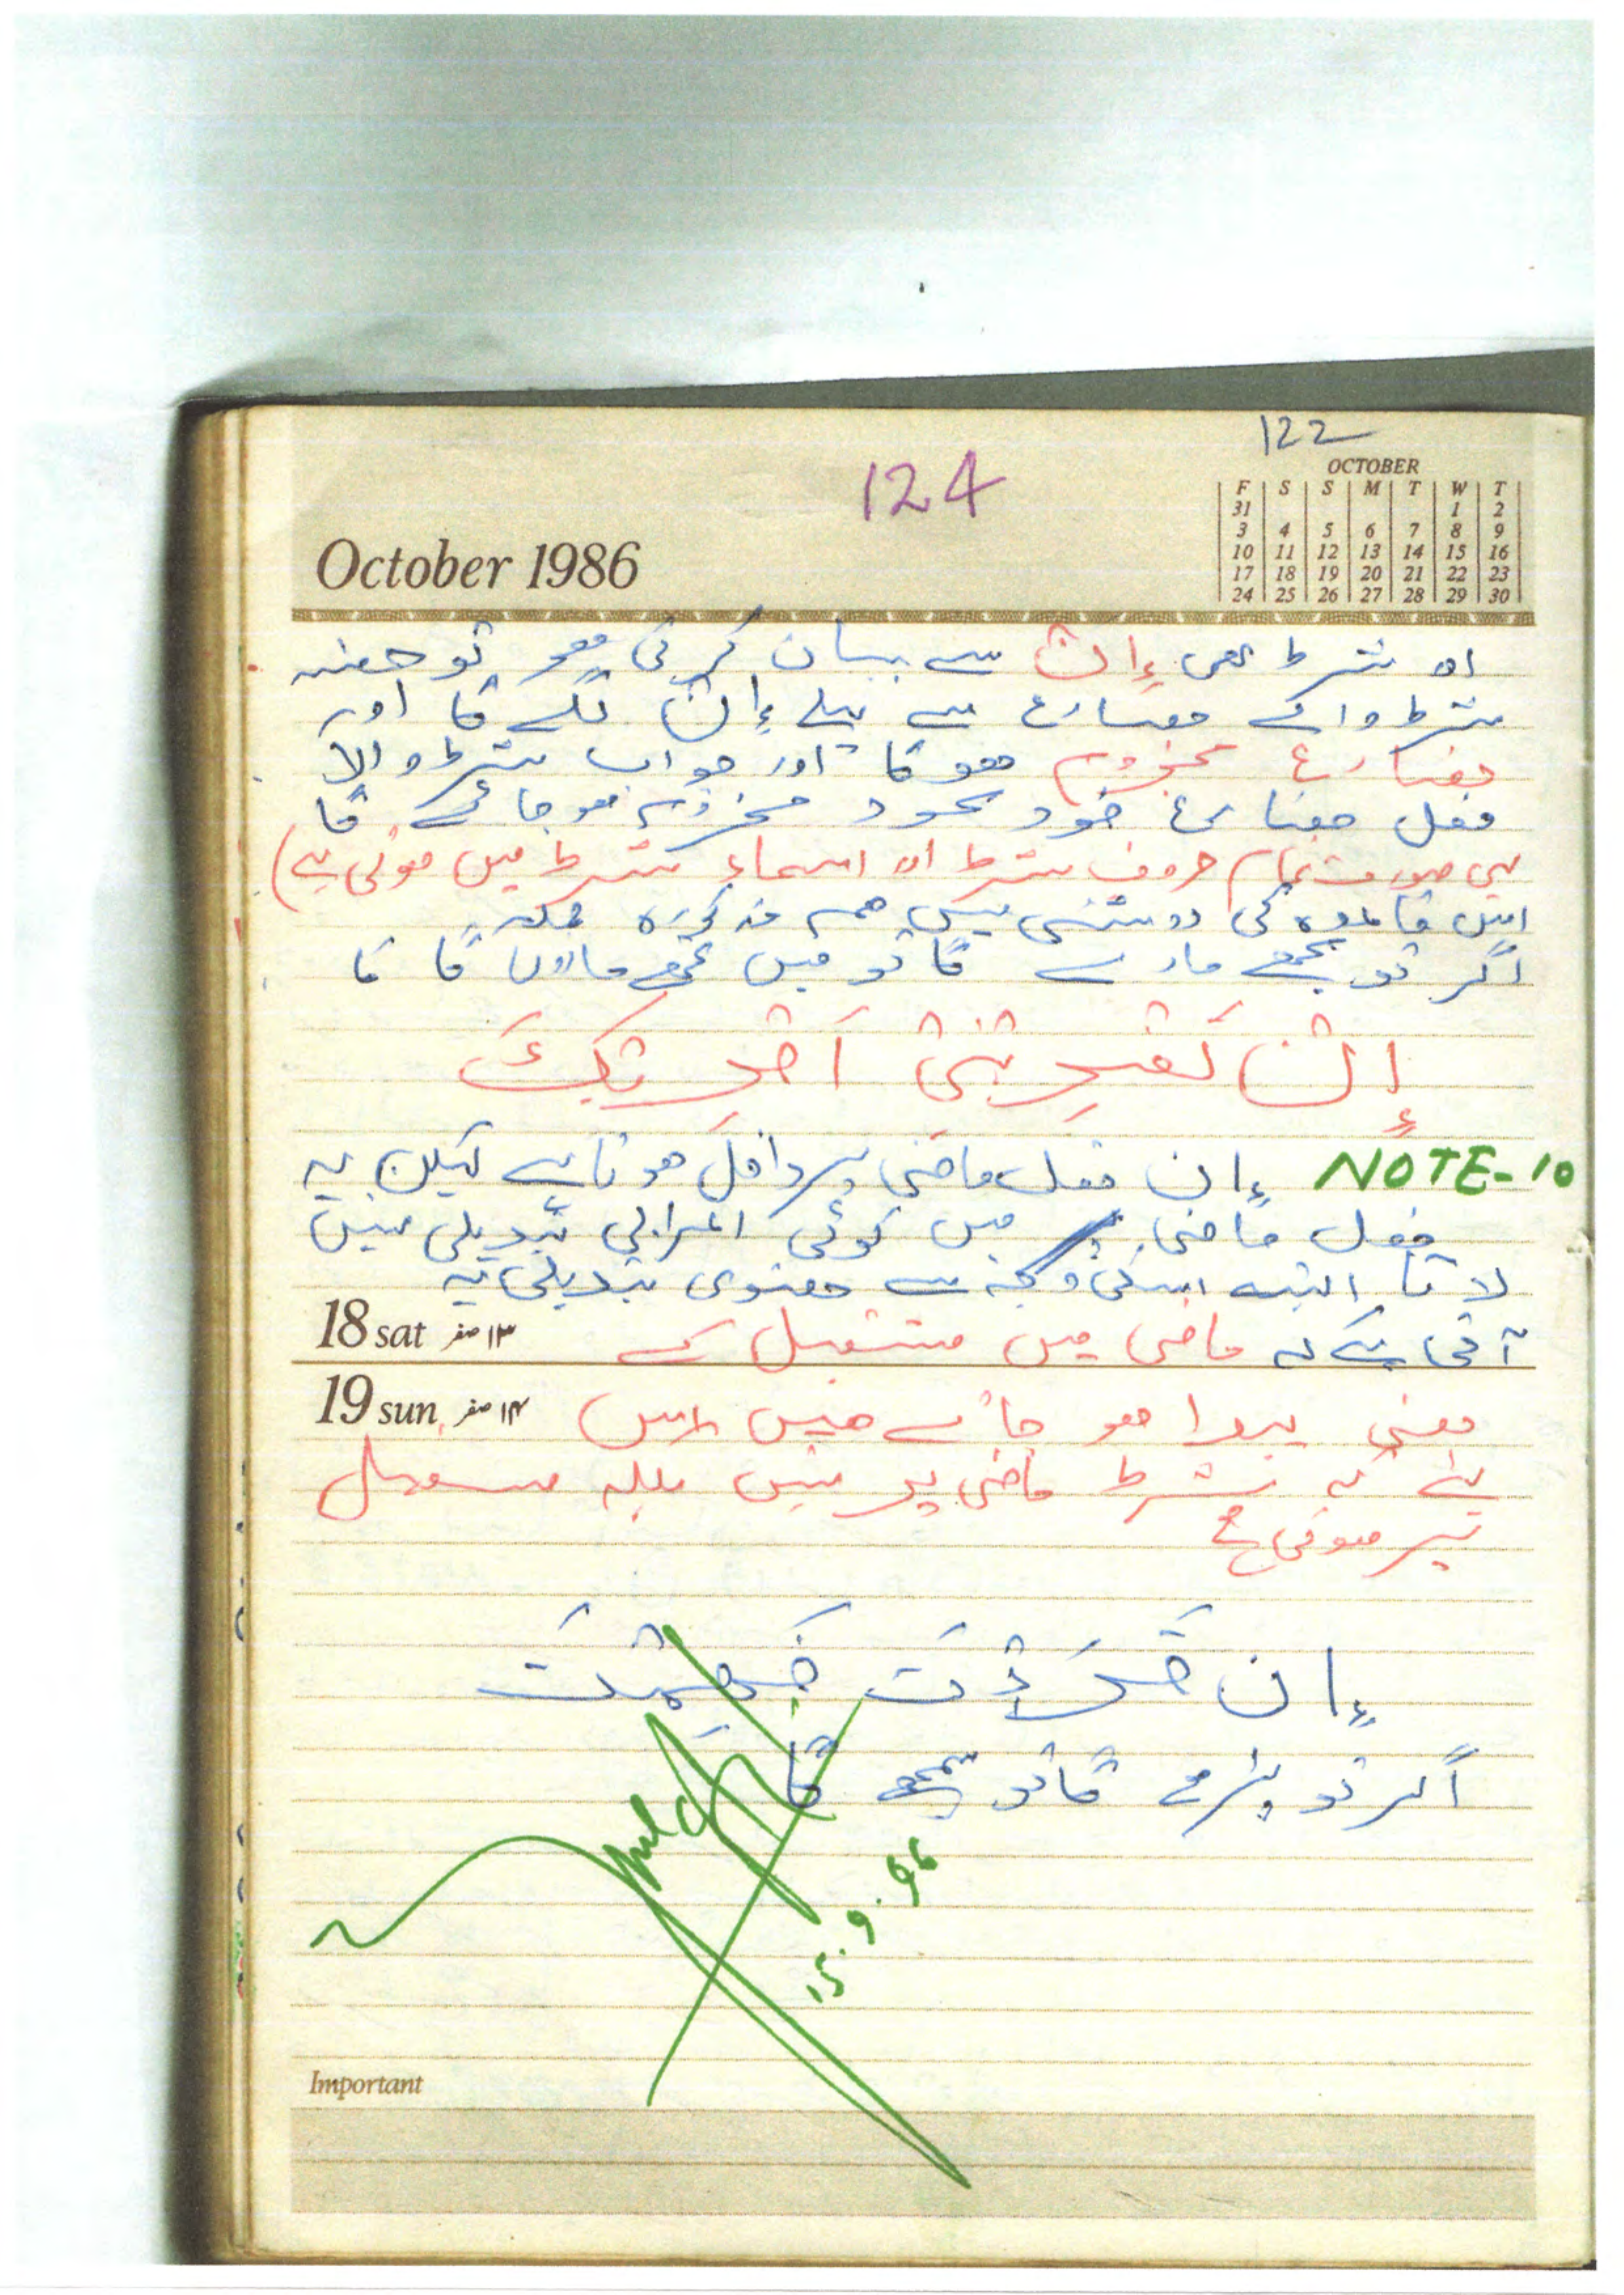 122
124
OCTOBER
F S S M T W T
31 1 2
3 4 5 6 7 8 9
10 11 12 13 14 15 16
17 18 19 20 21 22 23
24 25 26 27 28 29 30
October 1986
اور شرط بھی إِنْ سے بیان کرنی ھو تو جملہ
شرط والے مضارع سے پہلے إِنْ لگے گا اور
مضارع مجزوم ھو گا اور جواب شرط والا
فعل مضارع خود بخود مجزوم ھو جائے گا
یہی صورت تمام حروف شرط اور اسماء شرط میں ہوتی ہے)
اس قاعدہ کی روشنی میں ھم مذکورہ جملہ
اگر تو مجھے مارے گا تو میں تجھے ماروں گا کا
إِنْ تَضْرِبْنِیْ اَضْرِبْكَ
NOTE-10 إِن فعل ماضی پر داخل ھوتا ہے لیکن یہ
فعل ماضی میں کوئی اعرابی تبدیلی نہیں
لاتا البتہ اسکی وجہ سے معنوی تبدیلی یہ
18 sat ۱۳ صفر آتی ہے کہ ماضی میں مستقبل کے
19 sun ۱۴ صفر معنی پیدا ھو جاتے ھیں اس
لئے کہ شرط ماضی پر نہیں بلکہ مستقبل
پر ھوتی ہے
إِن قَرَأْتَ فَهِمْتَ
اگر تو پڑھے گا تو سمجھے گا
15.9.96
Important